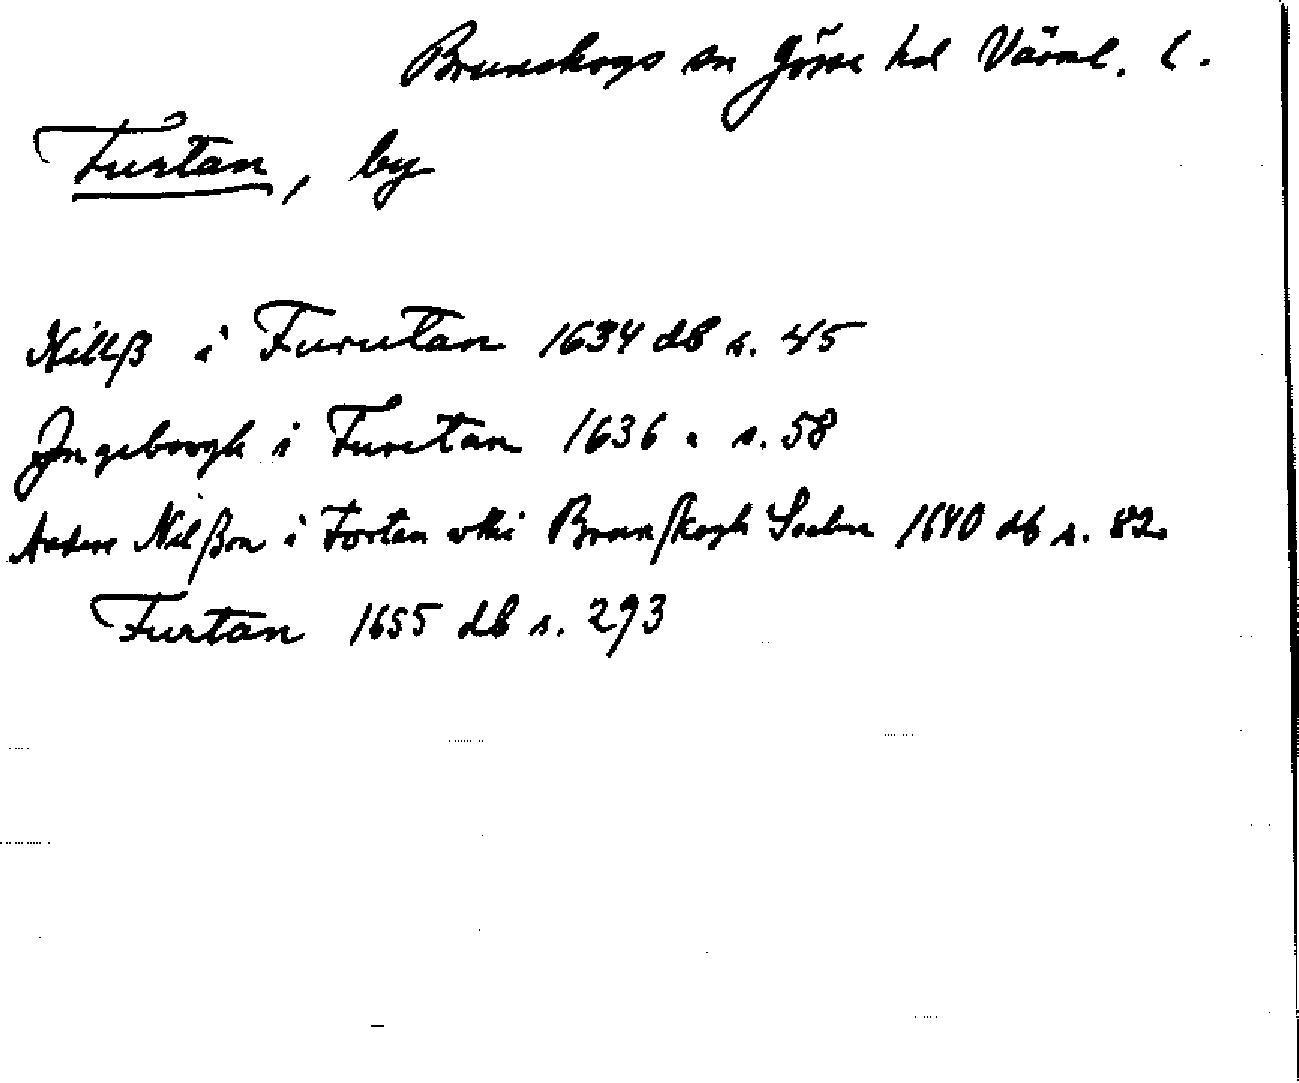 Brunskogs sn Jösse hd Värml. l.
Furtan, by
Nillß i Furutan 1634 db s. 45
Jngeborgh i Furetan 1636 " s. 58
Anders Nilßon i Fortan vthi Brunskogh Sochn 1640 db s. 82
Furtan 1655 db s. 293